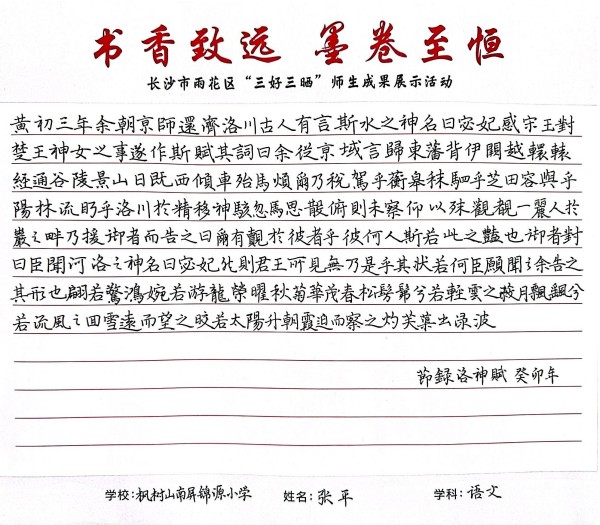 书香致远 墨卷至恒
长沙市雨花区“三好三晒”师生成果展示活动
黄初三年余朝京師還濟洛川古人有言斯水之神名曰宓妃感宋玉對
楚王神女之事遂作斯賦其詞曰余從京域言歸東藩背伊闕越轘轅
經通谷陵景山日既西傾車殆馬煩爾乃稅駕乎蘅皋秣駟乎芝田容與乎
陽林流眄乎洛川於精移神駭忽焉思散俯則未察仰以殊觀覩一麗人於
巖之畔乃援御者而告之曰爾有覿於彼者乎彼何人斯若此之豔也御者對
曰臣聞河洛之神名曰宓妃然則君王所見無乃是乎其狀若何臣願聞之余告之
其形也翩若驚鴻婉若游龍榮曜秋菊華茂春松髣髴兮若輕雲之蔽月飄颻兮
若流風之回雪遠而望之皎若太陽升朝霞迫而察之灼若芙蕖出淥波
節録洛神賦 癸卯年
学校:枫树山南屏锦源小学 姓名:张平 学科:语文